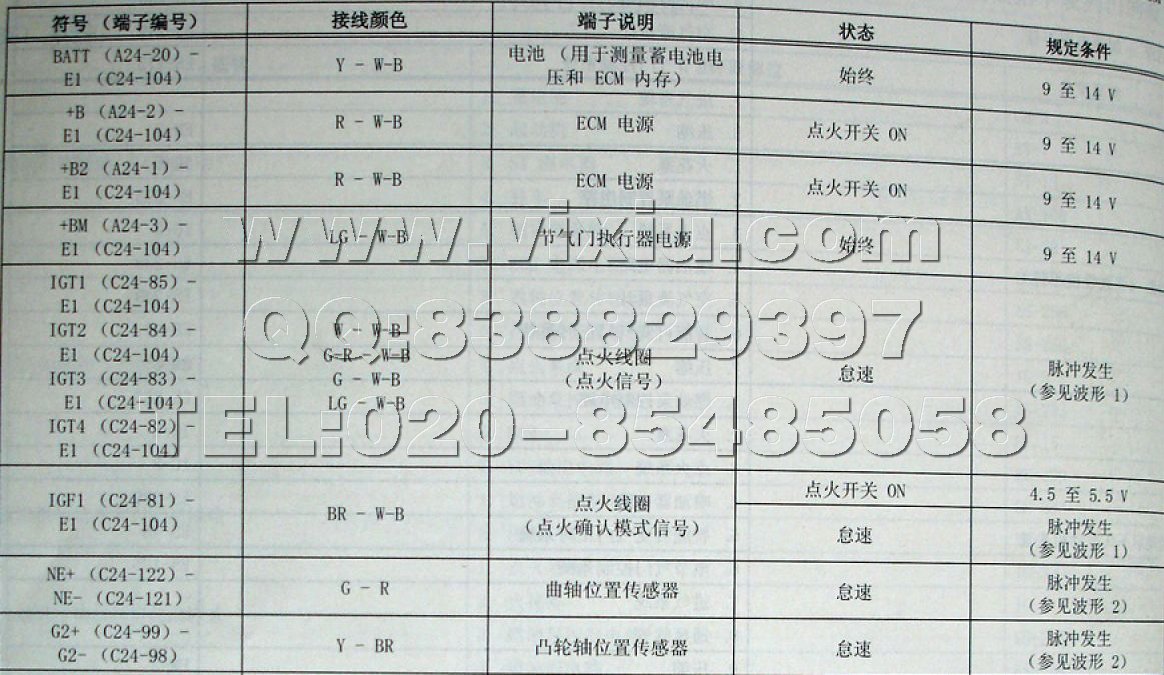 符号 (端子编号) 接线颜色 端子说明 状态 规定条件
BATT (A24-20) -
E1 (C24-104)
Y - W-B
电池 (用于测量蓄电池电
压和 ECM 内存)
始终
9 至 14 V
+B (A24-2) -
E1 (C24-104)
R - W-B
ECM 电源
点火开关 ON
9 至 14 V
+B2 (A24-1) -
E1 (C24-104)
R - W-B
ECM 电源
点火开关 ON
9 至 14 V
+BM (A24-3) -
E1 (C24-104)
LG - W-B
节气门执行器电源
始终
9 至 14 V
www.vixiu.com
IGT1 (C24-85) -
E1 (C24-104)
IGT2 (C24-84) -
E1 (C24-104)
IGT3 (C24-83) -
E1 (C24-104)
IGT4 (C24-82) -
E1 (C24-104)
W - W-B
G-R - W-B
G - W-B
LG - W-B
点火线圈
(点火信号)
怠速
脉冲发生
(参见波形 1)
QQ:838829397
TEL:020-85485058
IGF1 (C24-81) -
E1 (C24-104)
BR - W-B
点火线圈
(点火确认模式信号)
点火开关 ON
4.5 至 5.5 V
怠速
脉冲发生
(参见波形 1)
NE+ (C24-122) -
NE- (C24-121)
G - R
曲轴位置传感器
怠速
脉冲发生
(参见波形 2)
G2+ (C24-99) -
G2- (C24-98)
Y - BR
凸轮轴位置传感器
怠速
脉冲发生
(参见波形 2)